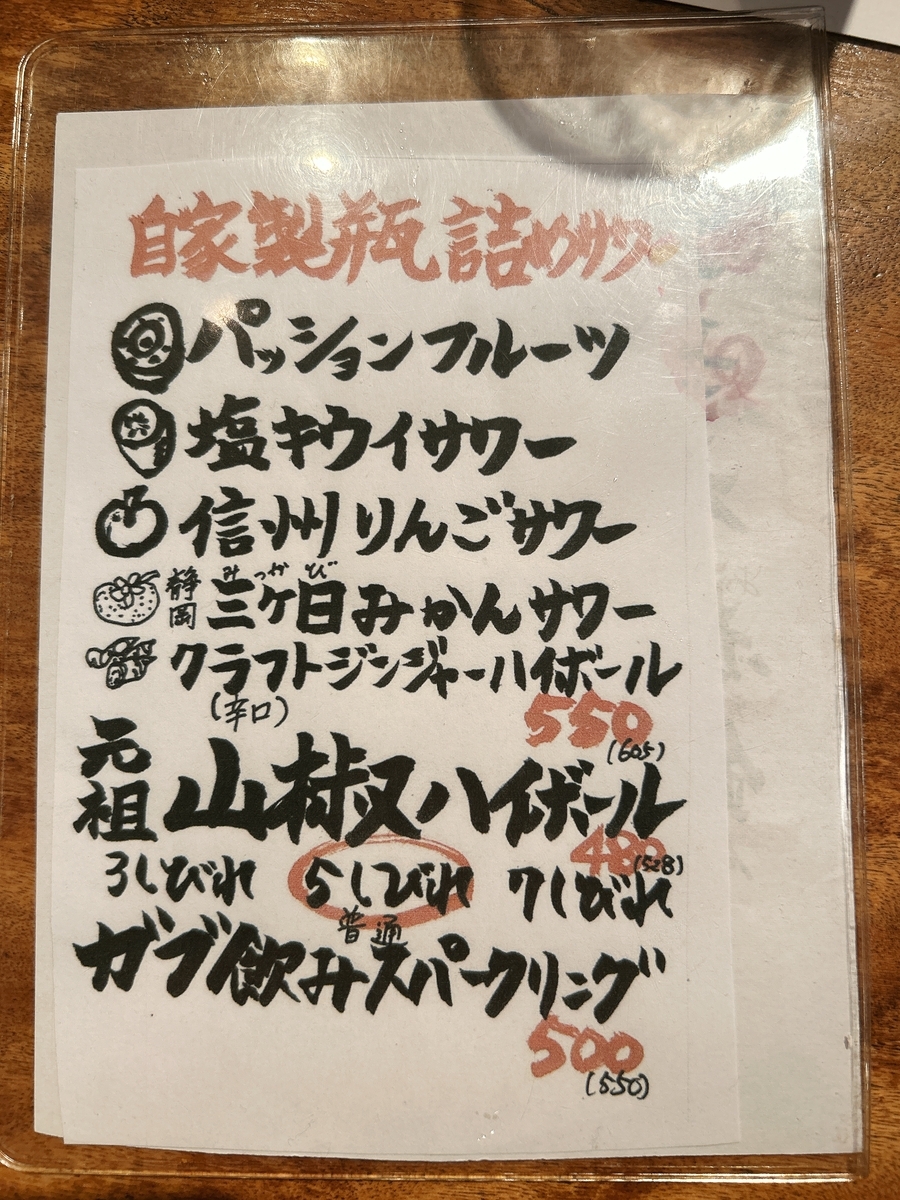 自家製瓶詰めサワー
パッションフルーツ
塩キウイサワー
信州りんごサワー
静岡 三ケ日みかんサワー
みっかび
クラフトジンジャーハイボール
(辛口)
550
(605)
元祖 山椒ハイボール
480
(528)
3しびれ 5しびれ 7しびれ
普通
ガブ飲みスパークリング
500
(550)